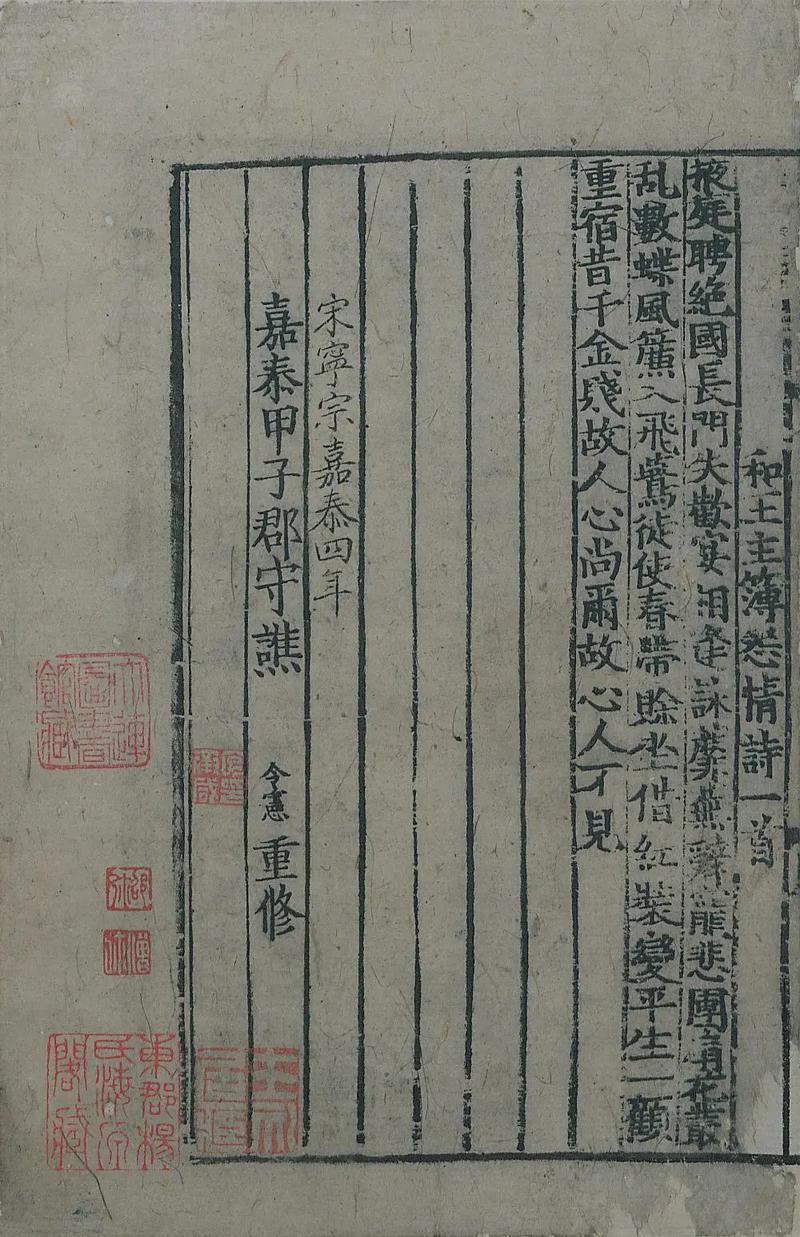 和王主簿怨情詩一首
掖庭聘絕國長門失歡宴相逢詠蘼蕪辭寵悲團扇花叢
乱數蝶風簾入飛鷰徒使春帶賒坐借紅裝變平生一顧
重宿昔千金賤故人心尚爾故心人不見
宋寧宗嘉泰四年
嘉泰甲子郡守譙 令憲 重修
大連圖書館藏
東郡楊氏海原閣藏